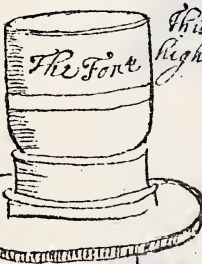 The Font
This
high